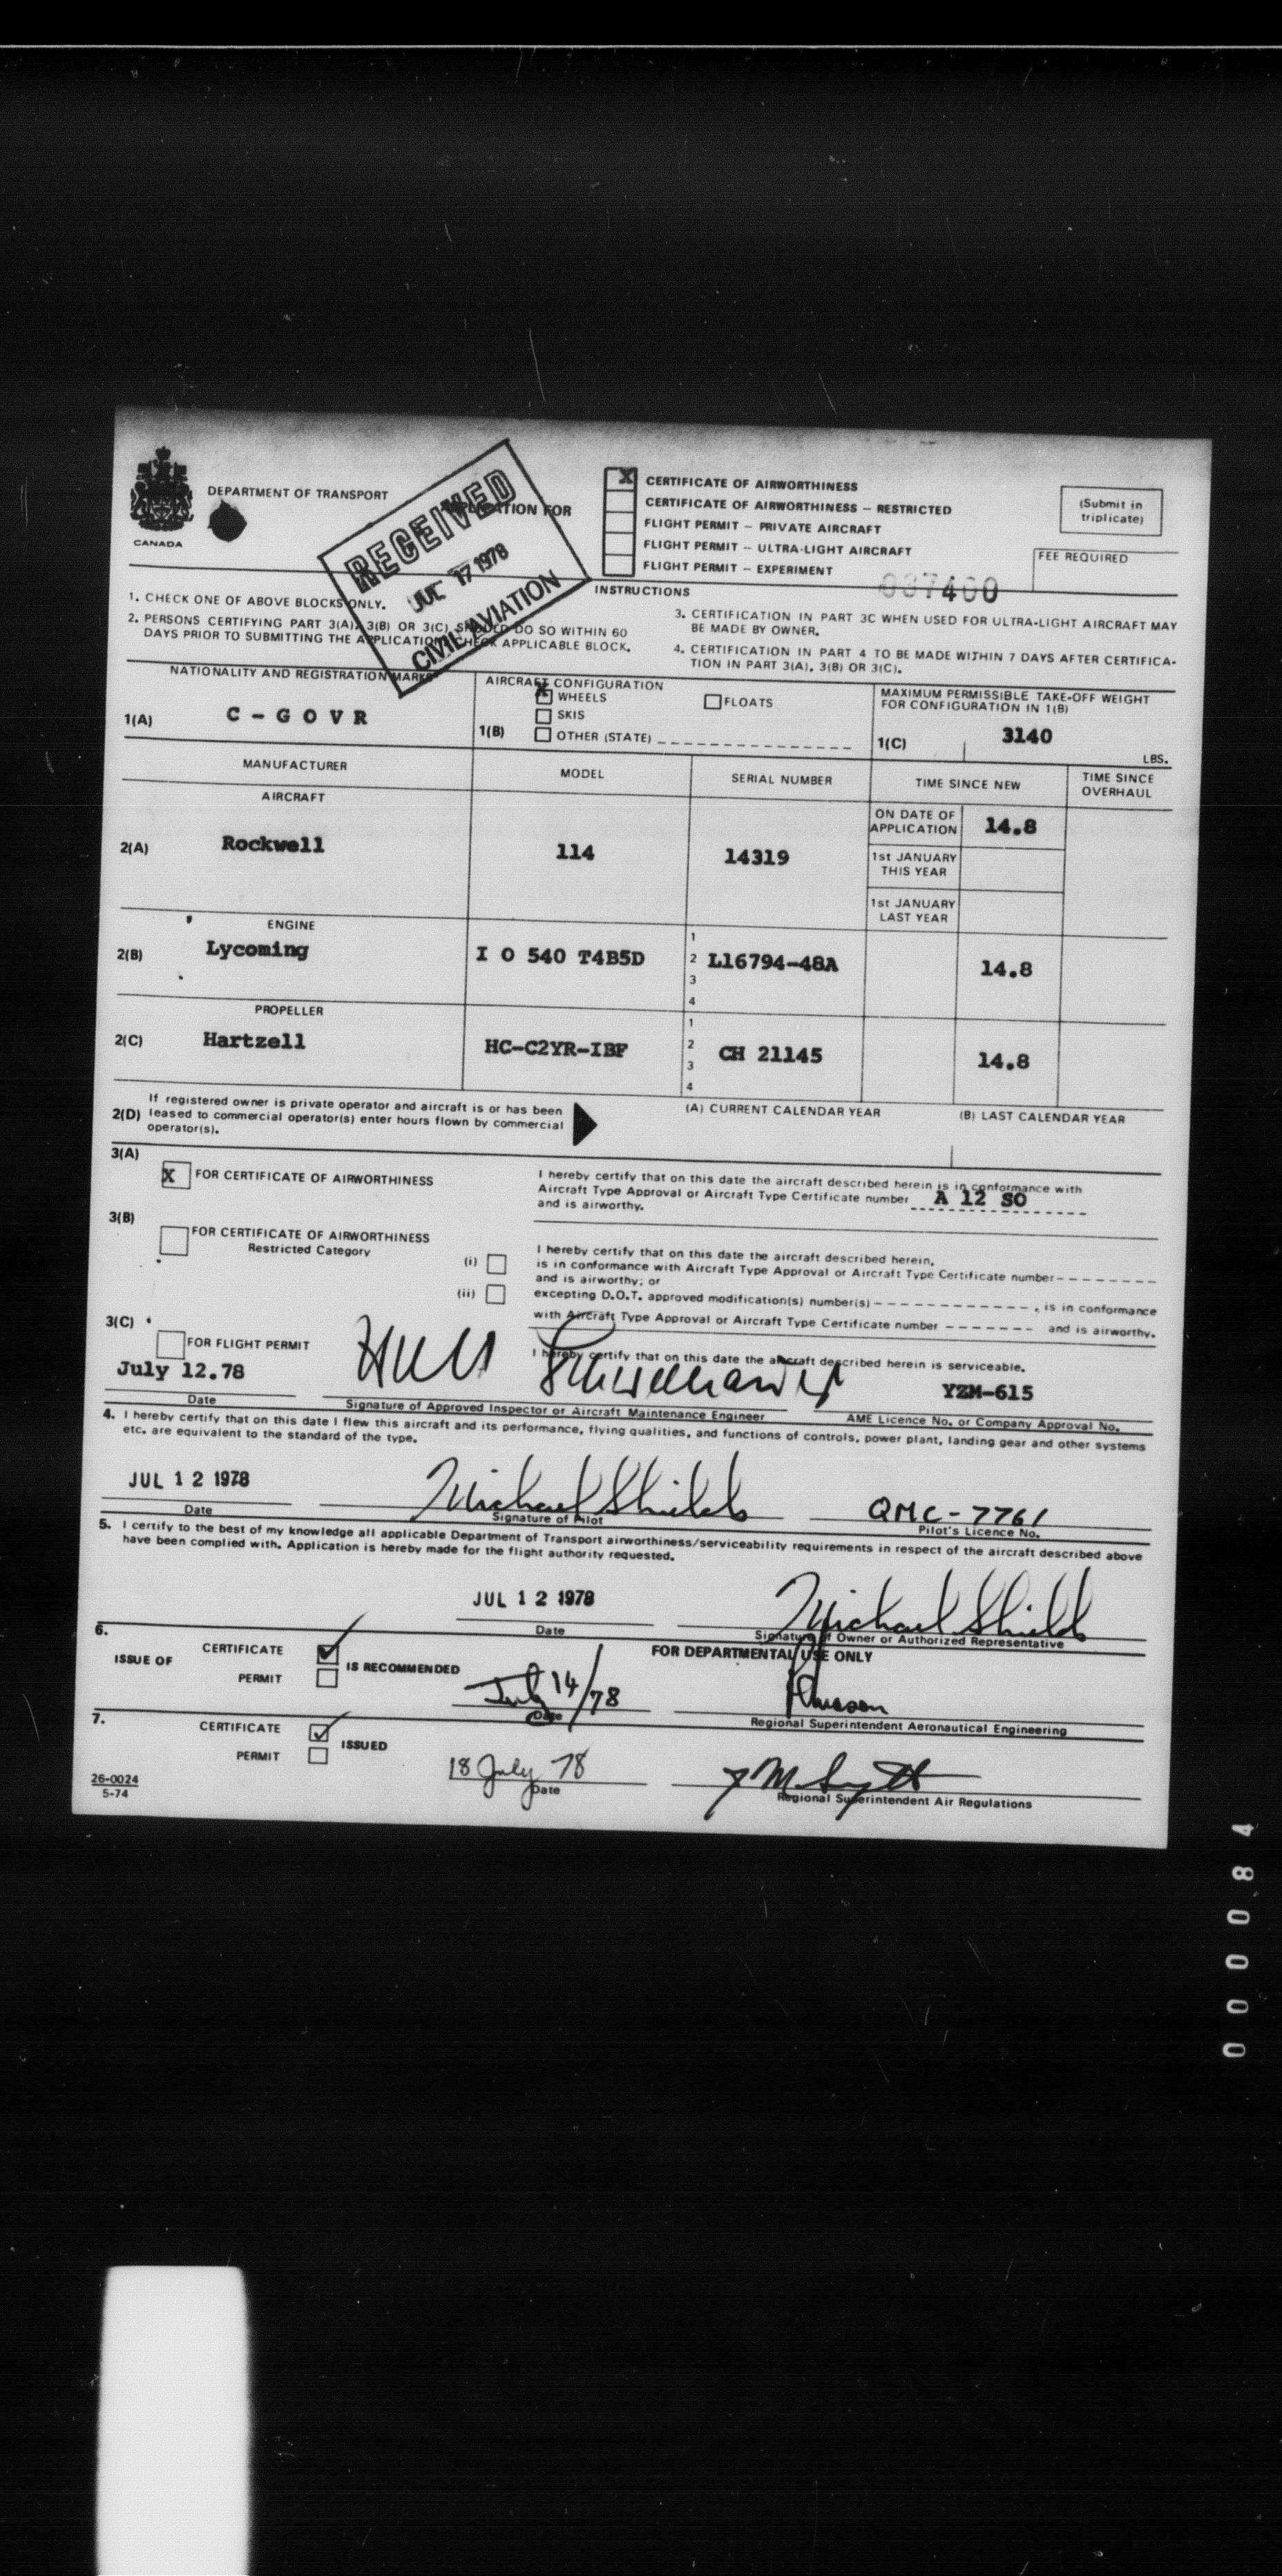 DEPARTMENT OF TRANSPORT
CANADA
APPLICATION FOR
RECEIVED
JUL 17 1978
CIVIL AVIATION
X CERTIFICATE OF AIRWORTHINESS
CERTIFICATE OF AIRWORTHINESS – RESTRICTED
FLIGHT PERMIT – PRIVATE AIRCRAFT
FLIGHT PERMIT – ULTRA-LIGHT AIRCRAFT
FLIGHT PERMIT – EXPERIMENT
(Submit in
triplicate)
FEE REQUIRED
037400
INSTRUCTIONS
1. CHECK ONE OF ABOVE BLOCKS ONLY.
2. PERSONS CERTIFYING PART 3(A), 3(B) OR 3(C), SHOULD DO SO WITHIN 60
DAYS PRIOR TO SUBMITTING THE APPLICATION. CHECK APPLICABLE BLOCK.
3. CERTIFICATION IN PART 3C WHEN USED FOR ULTRA-LIGHT AIRCRAFT MAY
BE MADE BY OWNER.
4. CERTIFICATION IN PART 4 TO BE MADE WITHIN 7 DAYS AFTER CERTIFICA-
TION IN PART 3(A), 3(B) OR 3(C).
NATIONALITY AND REGISTRATION MARKS
1(A) C – G O V R
AIRCRAFT CONFIGURATION
X WHEELS
FLOATS
SKIS
1(B) OTHER (STATE)
MAXIMUM PERMISSIBLE TAKE-OFF WEIGHT
FOR CONFIGURATION IN 1(B)
1(C) 3140
LBS.
MANUFACTURER MODEL SERIAL NUMBER TIME SINCE NEW TIME SINCE
OVERHAUL
AIRCRAFT
2(A) Rockwell 114 14319
ON DATE OF
APPLICATION 14.8
1st JANUARY
THIS YEAR
1st JANUARY
LAST YEAR
ENGINE
2(B) Lycoming I O 540 T4B5D
1
2 L16794-48A 14.8
3
4
PROPELLER
2(C) Hartzell HC-C2YR-IBF
1
2 CH 21145 14.8
3
4
2(D) If registered owner is private operator and aircraft is or has been
leased to commercial operator(s) enter hours flown by commercial
operator(s).
(A) CURRENT CALENDAR YEAR (B) LAST CALENDAR YEAR
3(A)
X FOR CERTIFICATE OF AIRWORTHINESS
I hereby certify that on this date the aircraft described herein is in conformance with
Aircraft Type Approval or Aircraft Type Certificate number A 12 SO
and is airworthy.
3(B)
FOR CERTIFICATE OF AIRWORTHINESS
Restricted Category
I hereby certify that on this date the aircraft described herein,
(i) is in conformance with Aircraft Type Approval or Aircraft Type Certificate number
and is airworthy; or
(ii) excepting D.O.T. approved modification(s) number(s) , is in conformance
with Aircraft Type Approval or Aircraft Type Certificate number and is airworthy.
3(C)
FOR FLIGHT PERMIT
I hereby certify that on this date the aircraft described herein is serviceable.
July 12.78 YZM-615
Date Signature of Approved Inspector or Aircraft Maintenance Engineer AME Licence No. or Company Approval No.
4. I hereby certify that on this date I flew this aircraft and its performance, flying qualities, and functions of controls, power plant, landing gear and other systems
etc. are equivalent to the standard of the type.
JUL 12 1978 Michael Shields QMC-7761
Date Signature of Pilot Pilot's Licence No.
5. I certify to the best of my knowledge all applicable Department of Transport airworthiness/serviceability requirements in respect of the aircraft described above
have been complied with. Application is hereby made for the flight authority requested.
JUL 12 1978 Michael Shields
Date Signature of Owner or Authorized Representative
6. FOR DEPARTMENTAL USE ONLY
ISSUE OF CERTIFICATE
PERMIT
IS RECOMMENDED
July 14/78
Date Regional Superintendent Aeronautical Engineering
7.
CERTIFICATE
PERMIT
ISSUED
18 July 78
Date Regional Superintendent Air Regulations
26-0024
5-74
000084